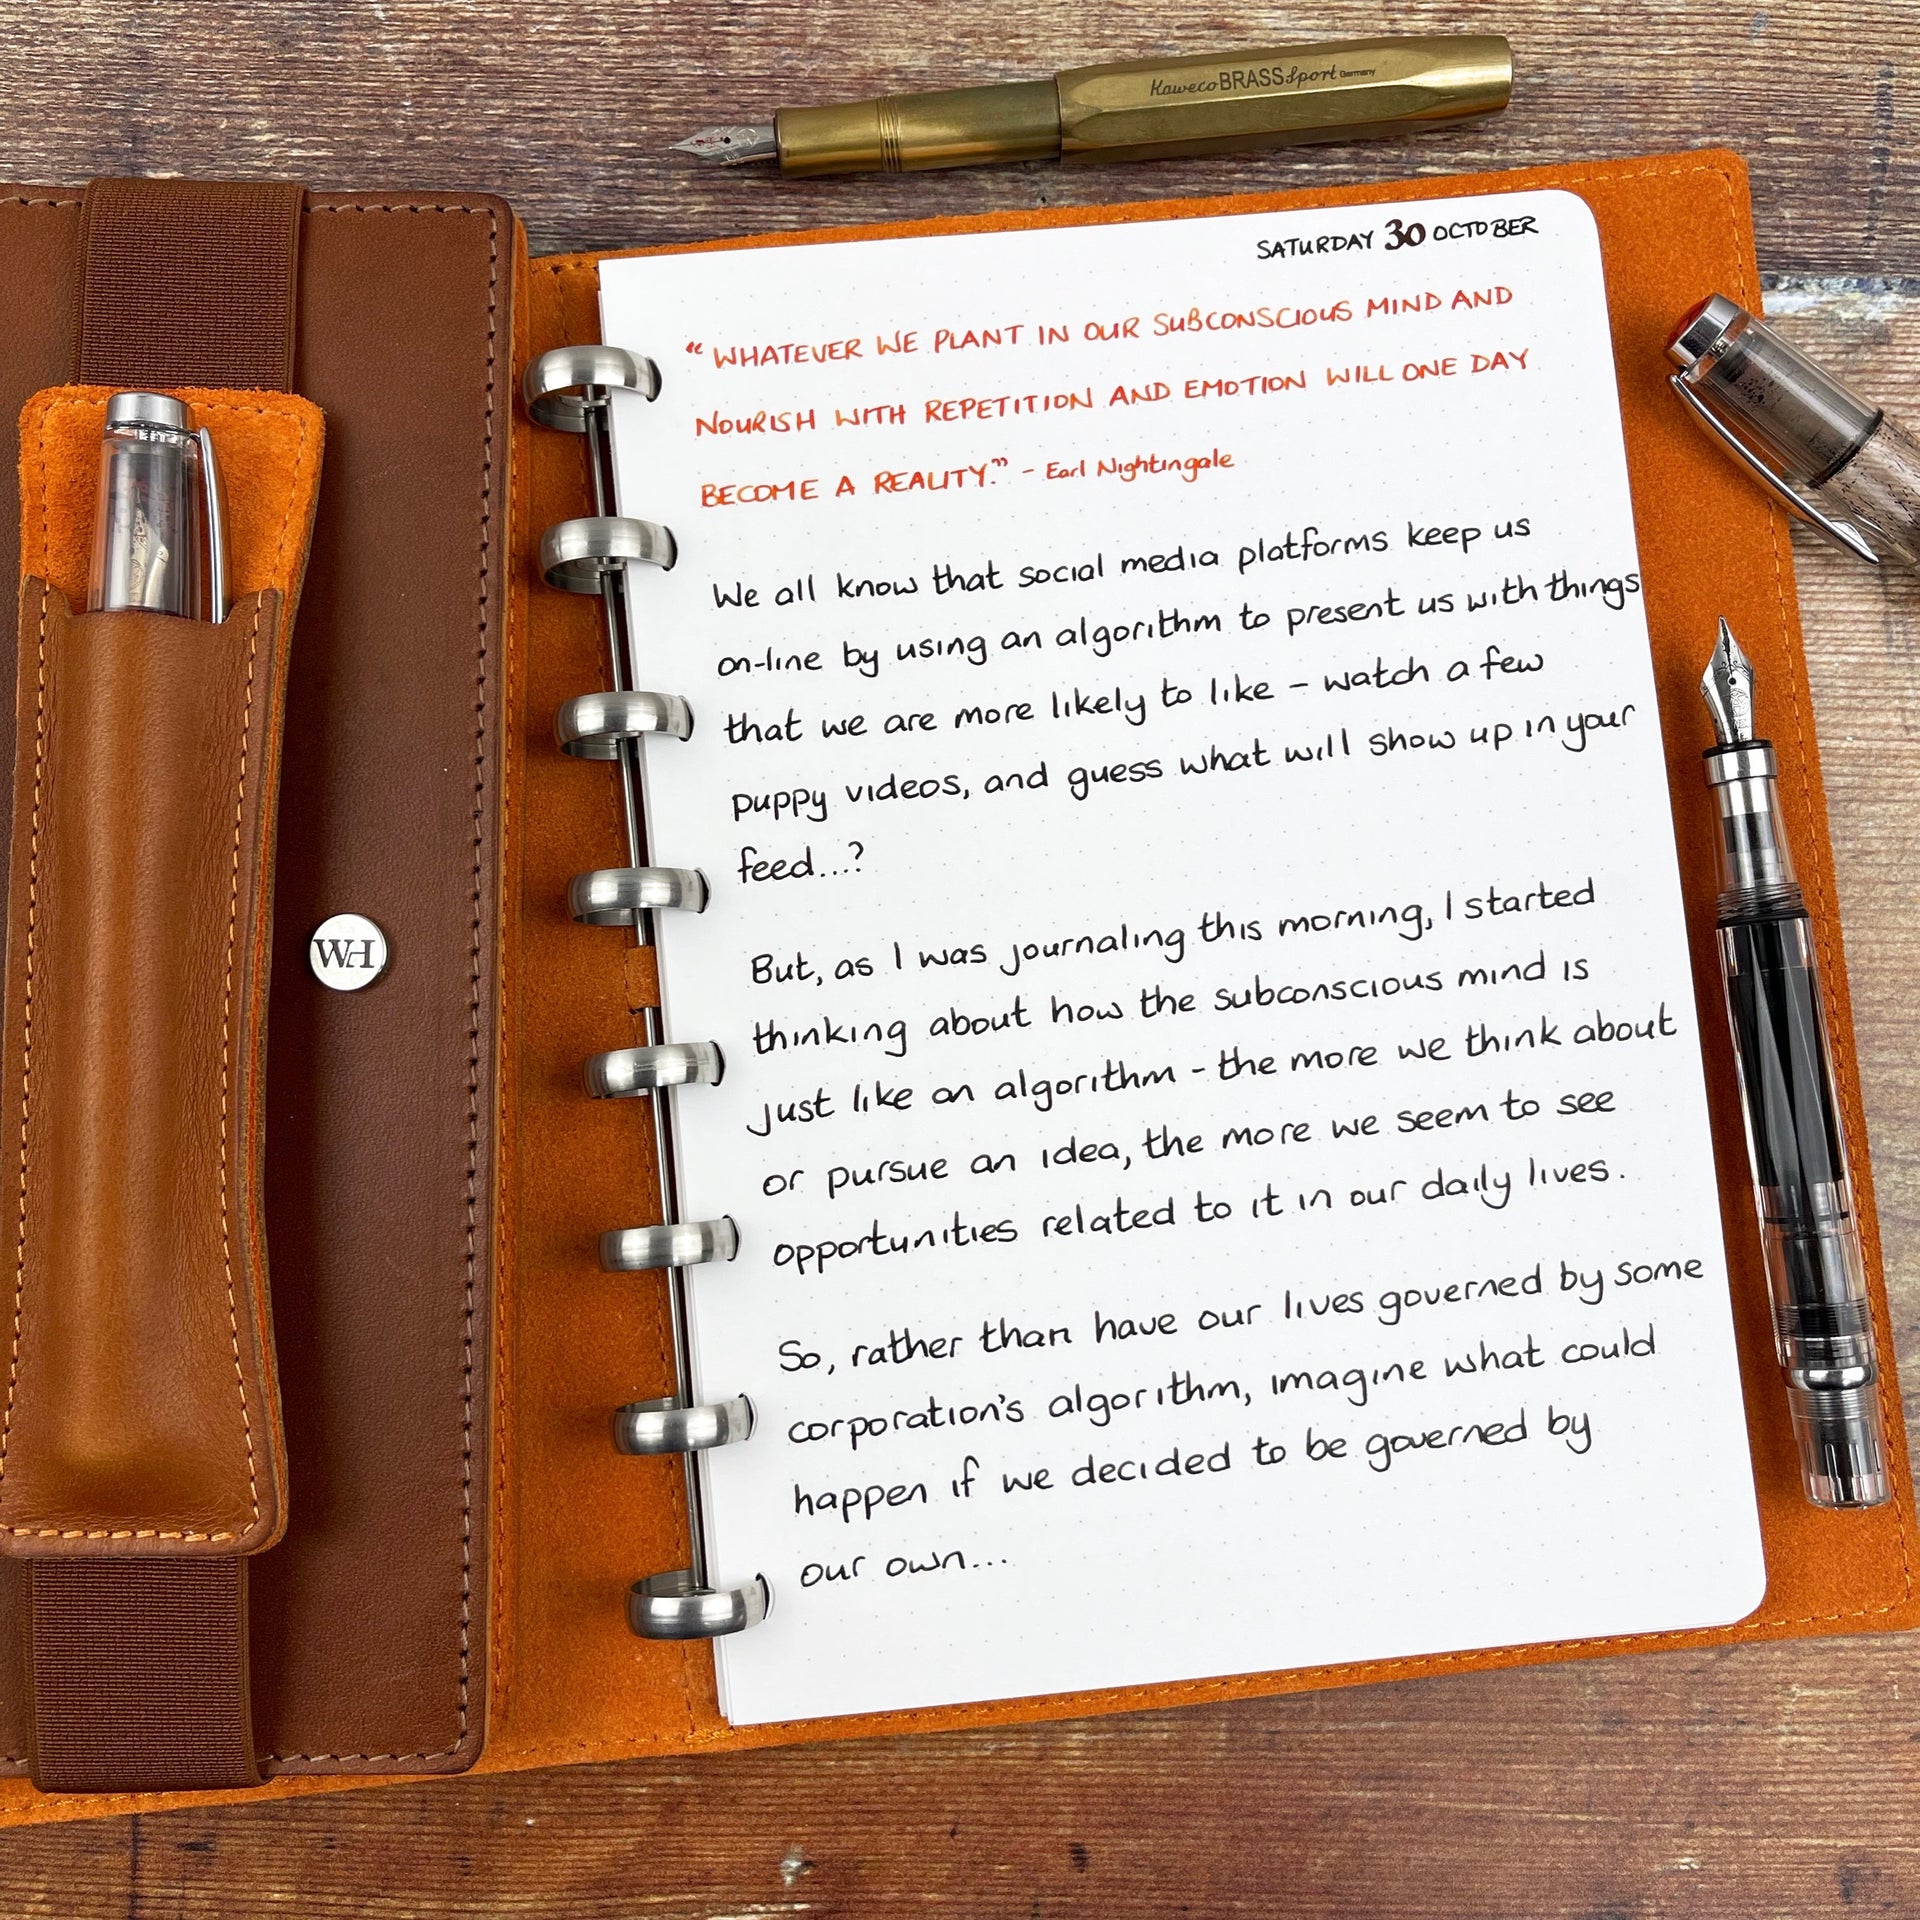 Kaweco BRASS Sport Germany
SATURDAY 30 OCTOBER
“WHATEVER WE PLANT IN OUR SUBCONSCIOUS MIND AND
NOURISH WITH REPETITION AND EMOTION WILL ONE DAY
BECOME A REALITY.” - Earl Nightingale
We all know that social media platforms keep us
on-line by using an algorithm to present us with things
that we are more likely to like - watch a few
puppy videos, and guess what will show up in your
feed...?
But, as I was journaling this morning, I started
thinking about how the subconscious mind is
just like an algorithm - the more we think about
or pursue an idea, the more we seem to see
opportunities related to it in our daily lives.
So, rather than have our lives governed by some
corporation's algorithm, imagine what could
happen if we decided to be governed by
our own...
WH